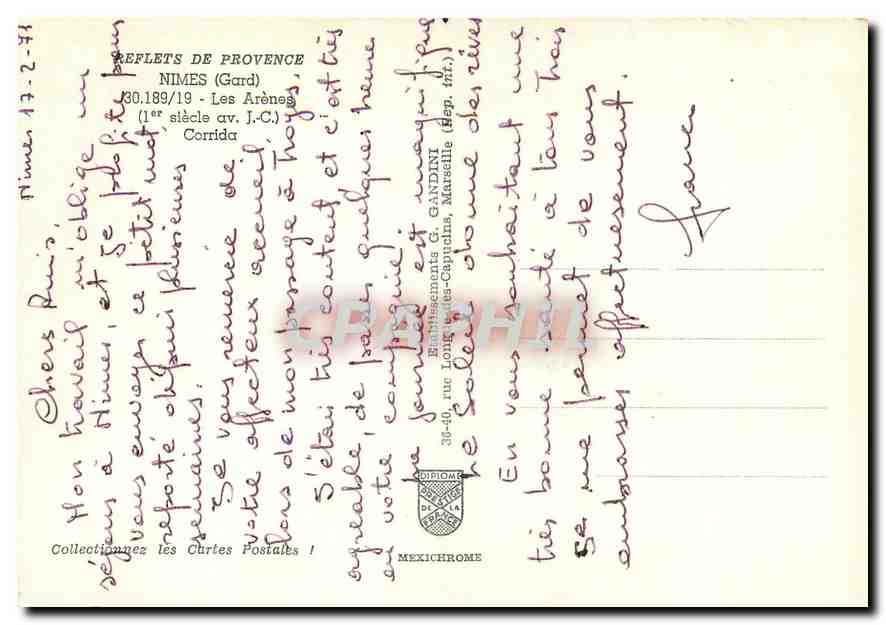 REFLETS DE PROVENCE
NIMES (Gard)
30.189/19 - Les Arènes
(1er siècle av. J.-C.)
Corrida
Nimes 17-2-71
Chers Amis,
Mon travail m'oblige un
séjour à Nimes, et Je profite pour
vous envoyer ce petit mot
reporté depuis plusieures
semaines.
Je vous remercie de
votre affecteux accueil,
lors de mon passage à Troyes.
J'étais très content et c'est très
agréable, de passer quelques heures
en votre compagnie.
La journée est magnifique
Le Soleil donne des rêves
En vous souhaitant une
très bonne santé à tous trois
Je me permet de vous
embrasser affectueusement.
Etablissements G. GANDINI
36-40, rue Longue-des-Capucins, Marseille (Rep. int.)
DIPLOME
PRESTIGE
DE LA
FRANCE
MEXICHROME
Collectionnez les Cartes Postales !
CPAPHIL